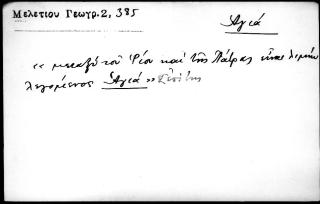 Μελετίου Γεωγρ.2, 385
Ἁγιά
«μεταξὺ τοῦ Ῥίου καὶ τῆς Πάτρας εἶναι λιμὴν
λεγόμενος Ἁγιά»